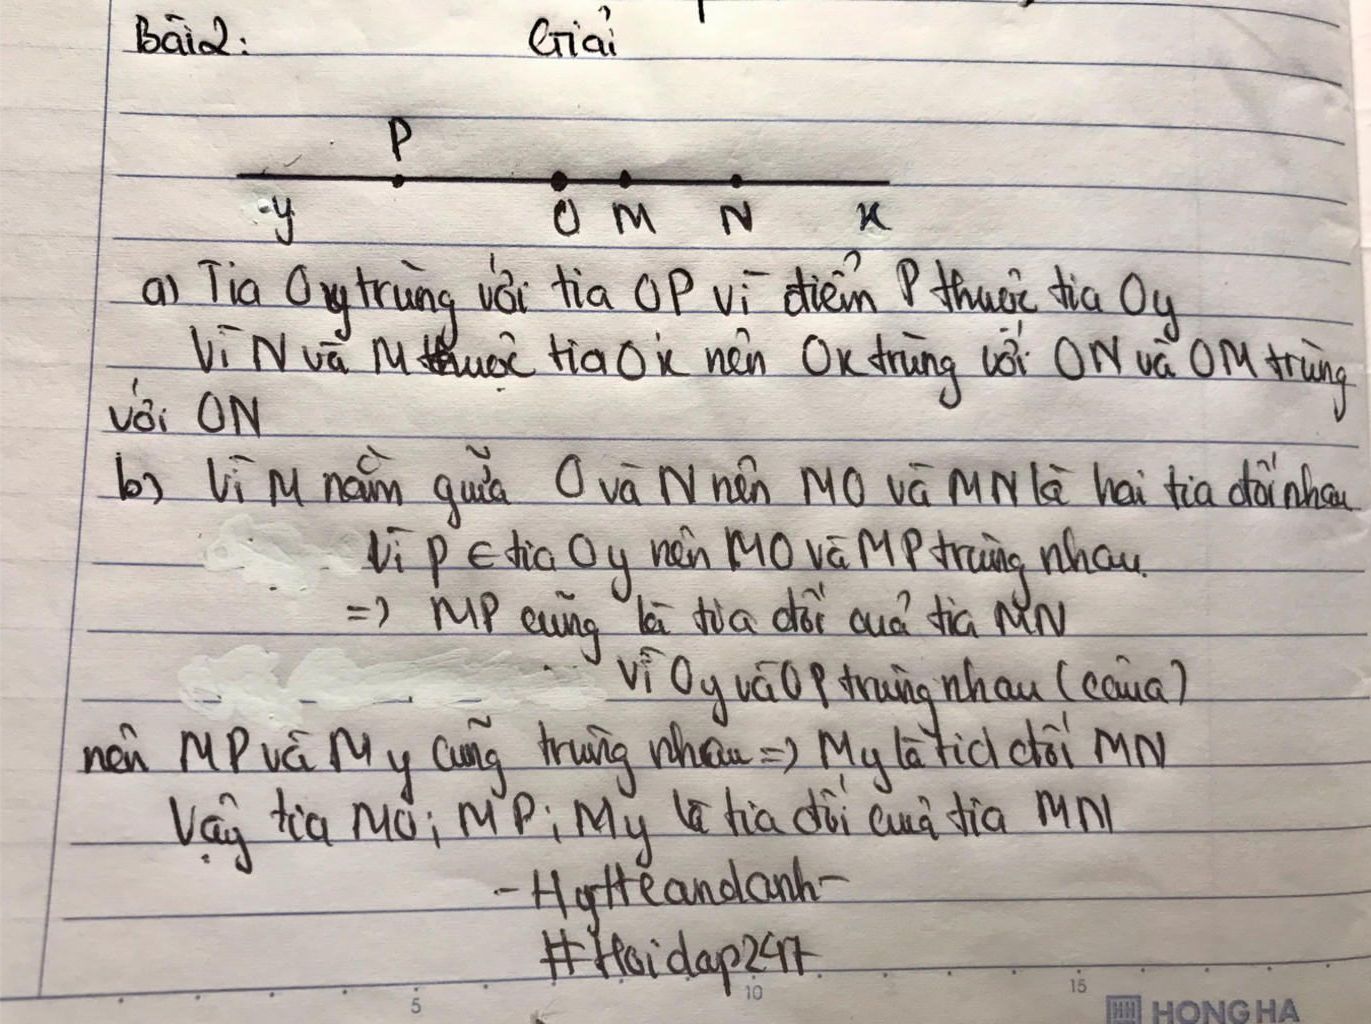 Bài2: Giải
P
y O M N x
a) Tia Oy trùng với tia OP vì điểm P thuộc tia Oy
Vì N và M thuộc tia Ox nên Ox trùng với ON và OM trùng
với ON
b) Vì M nằm giữa O và N nên MO và MN là hai tia đối nhau
Vì P ∈ tia Oy nên MO và MP trùng nhau.
=> MP cũng là tia đối của tia MN
Vì Oy và OP trùng nhau (câua)
nên MP và My cũng trùng nhau => My là tia đối MN
Vậy tia MO; MP; My là tia đối của tia MN
#Hoidap247
5 10 15
HONG HA